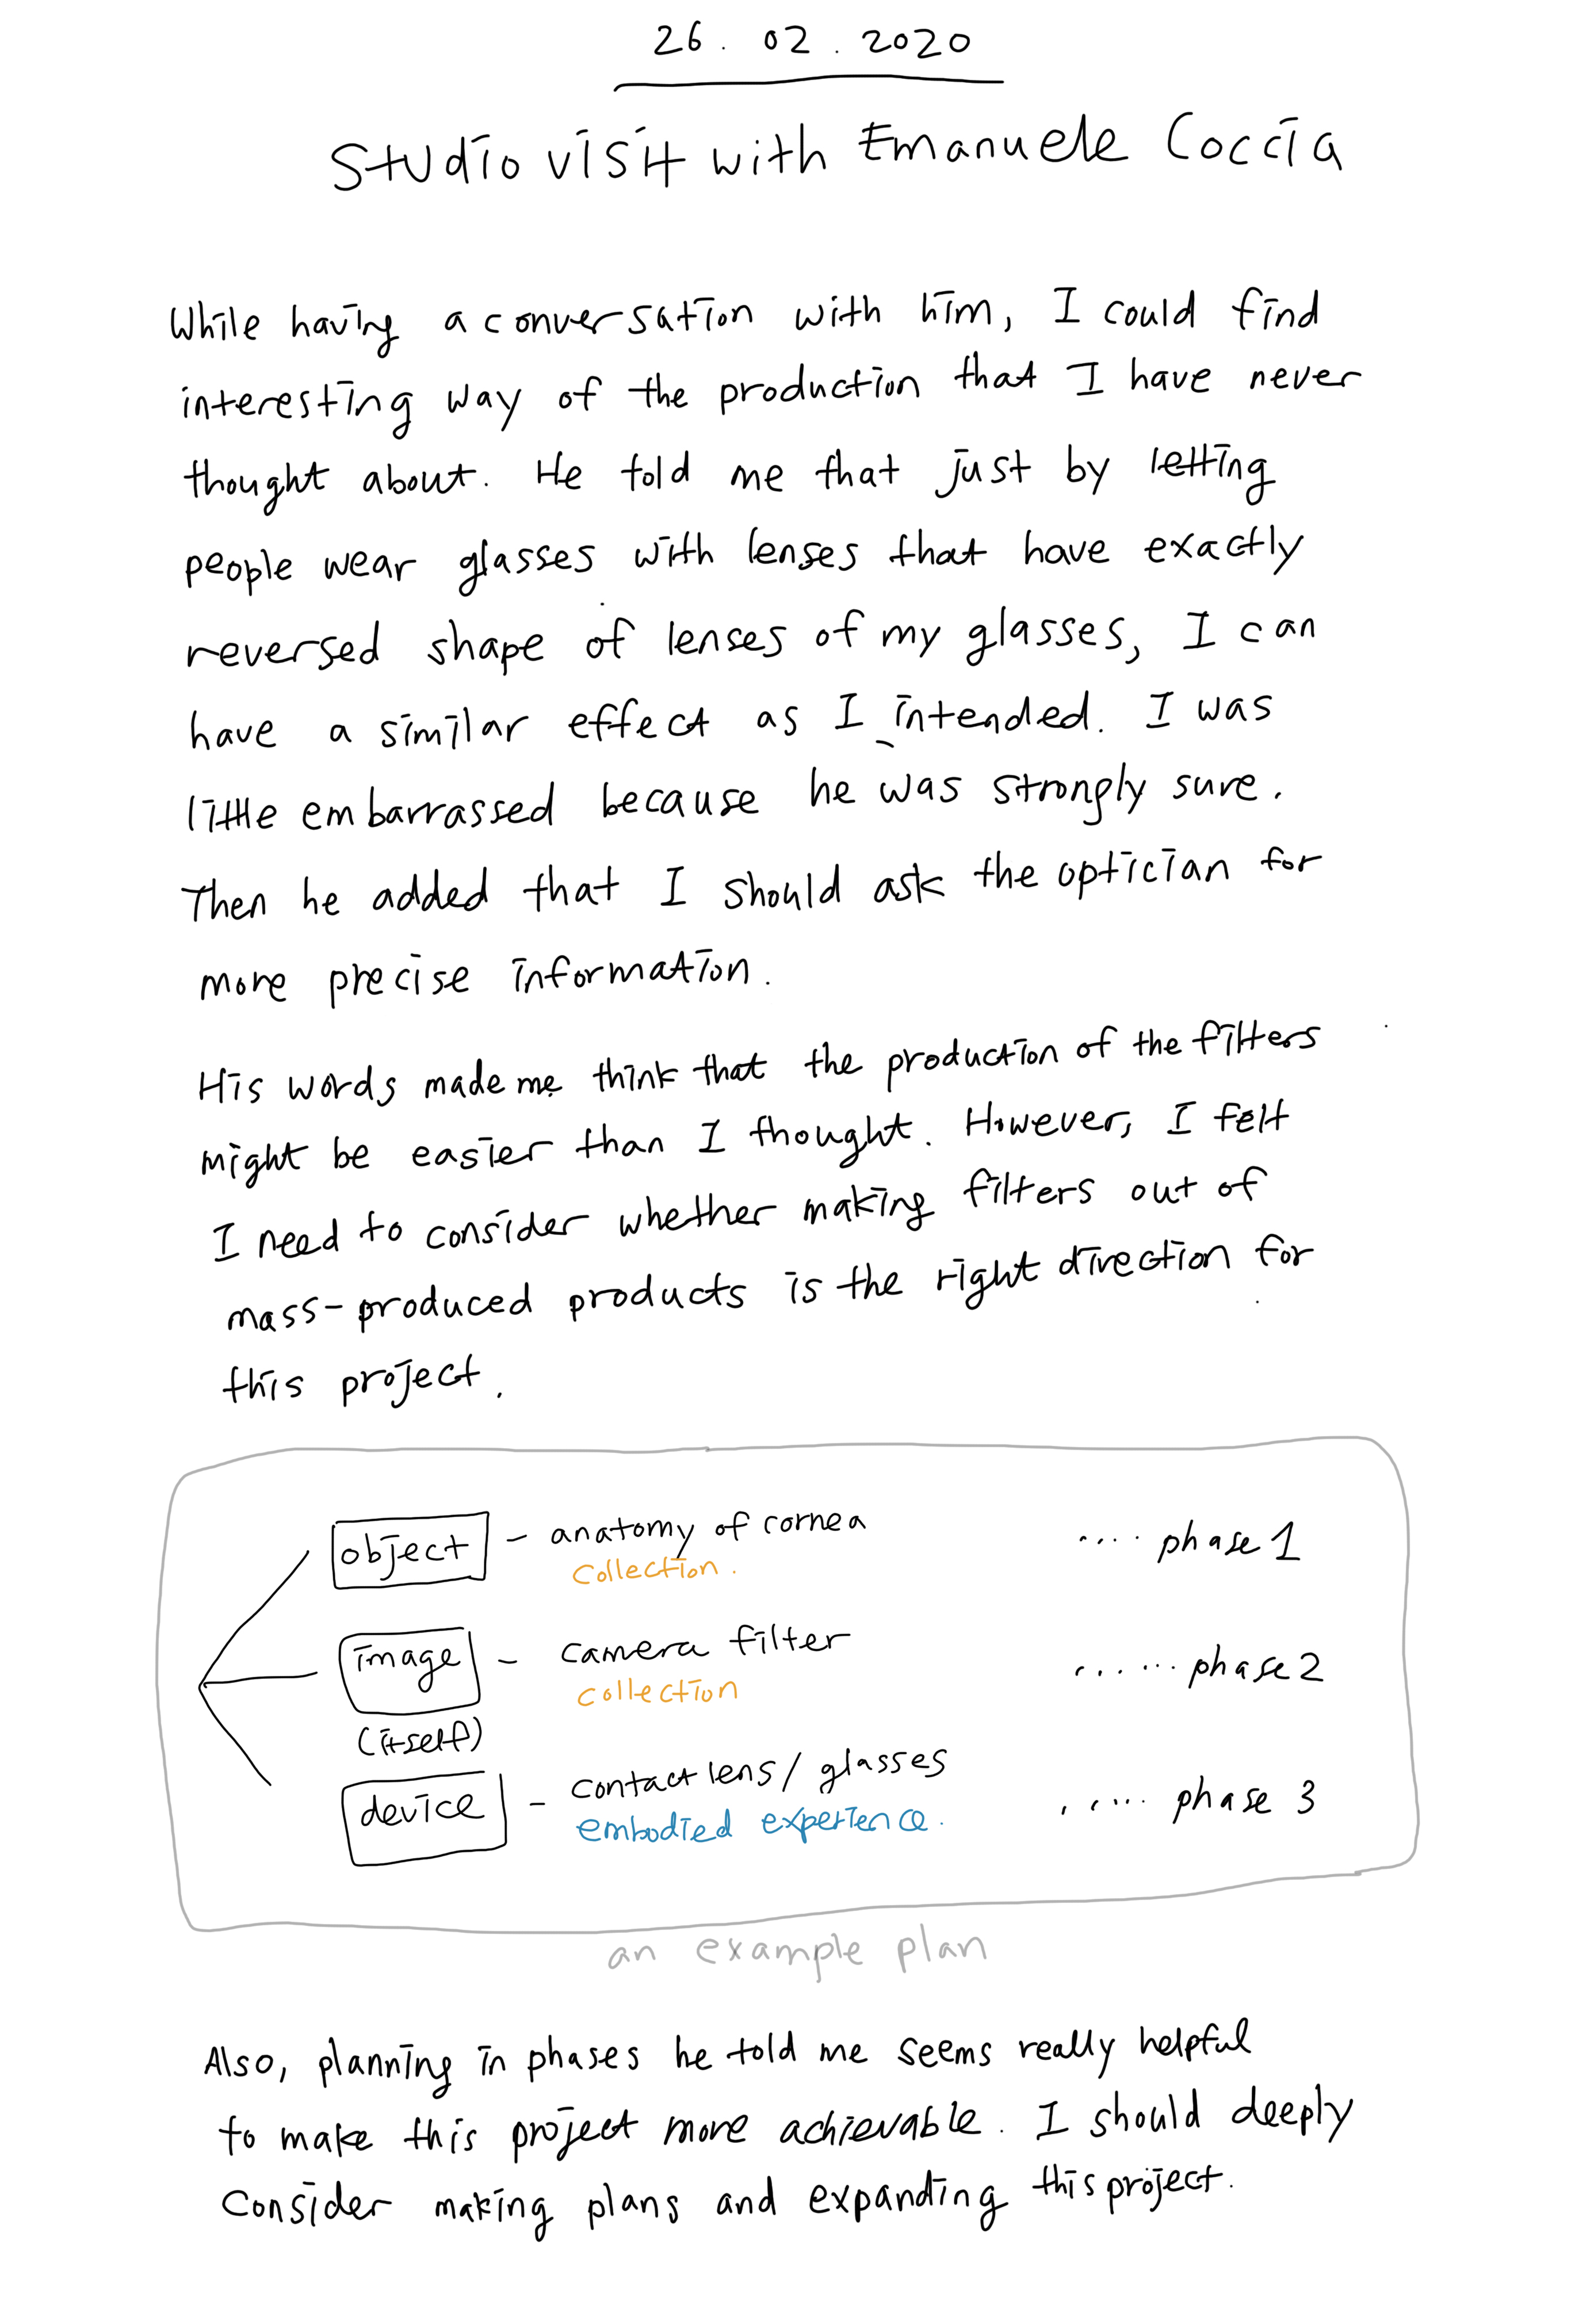 26. 02. 2020
Studio visit with Emanuele Coccia
While having a conversation with him, I could find
interesting way of the production that I have never
thought about. He told me that just by letting
people wear glasses with lenses that have exactly
reversed shape of lenses of my glasses, I can
have a similar effect as I intended. I was
little embarrassed because he was strongly sure.
Then he added that I should ask the optician for
more precise information.
His words made me think that the production of the filters
might be easier than I thought. However, I felt
I need to consider whether making filters out of
mass-produced products is the right direction for
this project.
object - anatomy of cornea .... phase 1
collection.
image - camera filter ...... phase 2
collection
(itself)
device - contact lens / glasses ..... phase 3
embodied experience.
an example plan
Also, planning in phases he told me seems really helpful
to make this project more achievable. I should deeply
consider making plans and expanding this project.